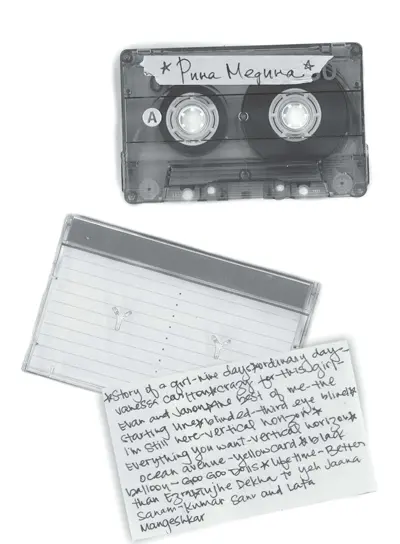 * Рина Медина *
A
*Story of a girl-nine days*ordinary day-
vanessa carlton*crazy for this girl-
Evan and Jaron*the best of me-the
starting line*blinded-third eye blind*
I'm still here-vertical horizon*
Everything you want-vertical horizon*
ocean avenue-yellowcard*black
balloon-Goo Goo Dolls*lifetime-Better
than Ezra*tujhe Dekha to yeh Jaana
Sanam-Kumar Sanu and Lata
Mangeshkar